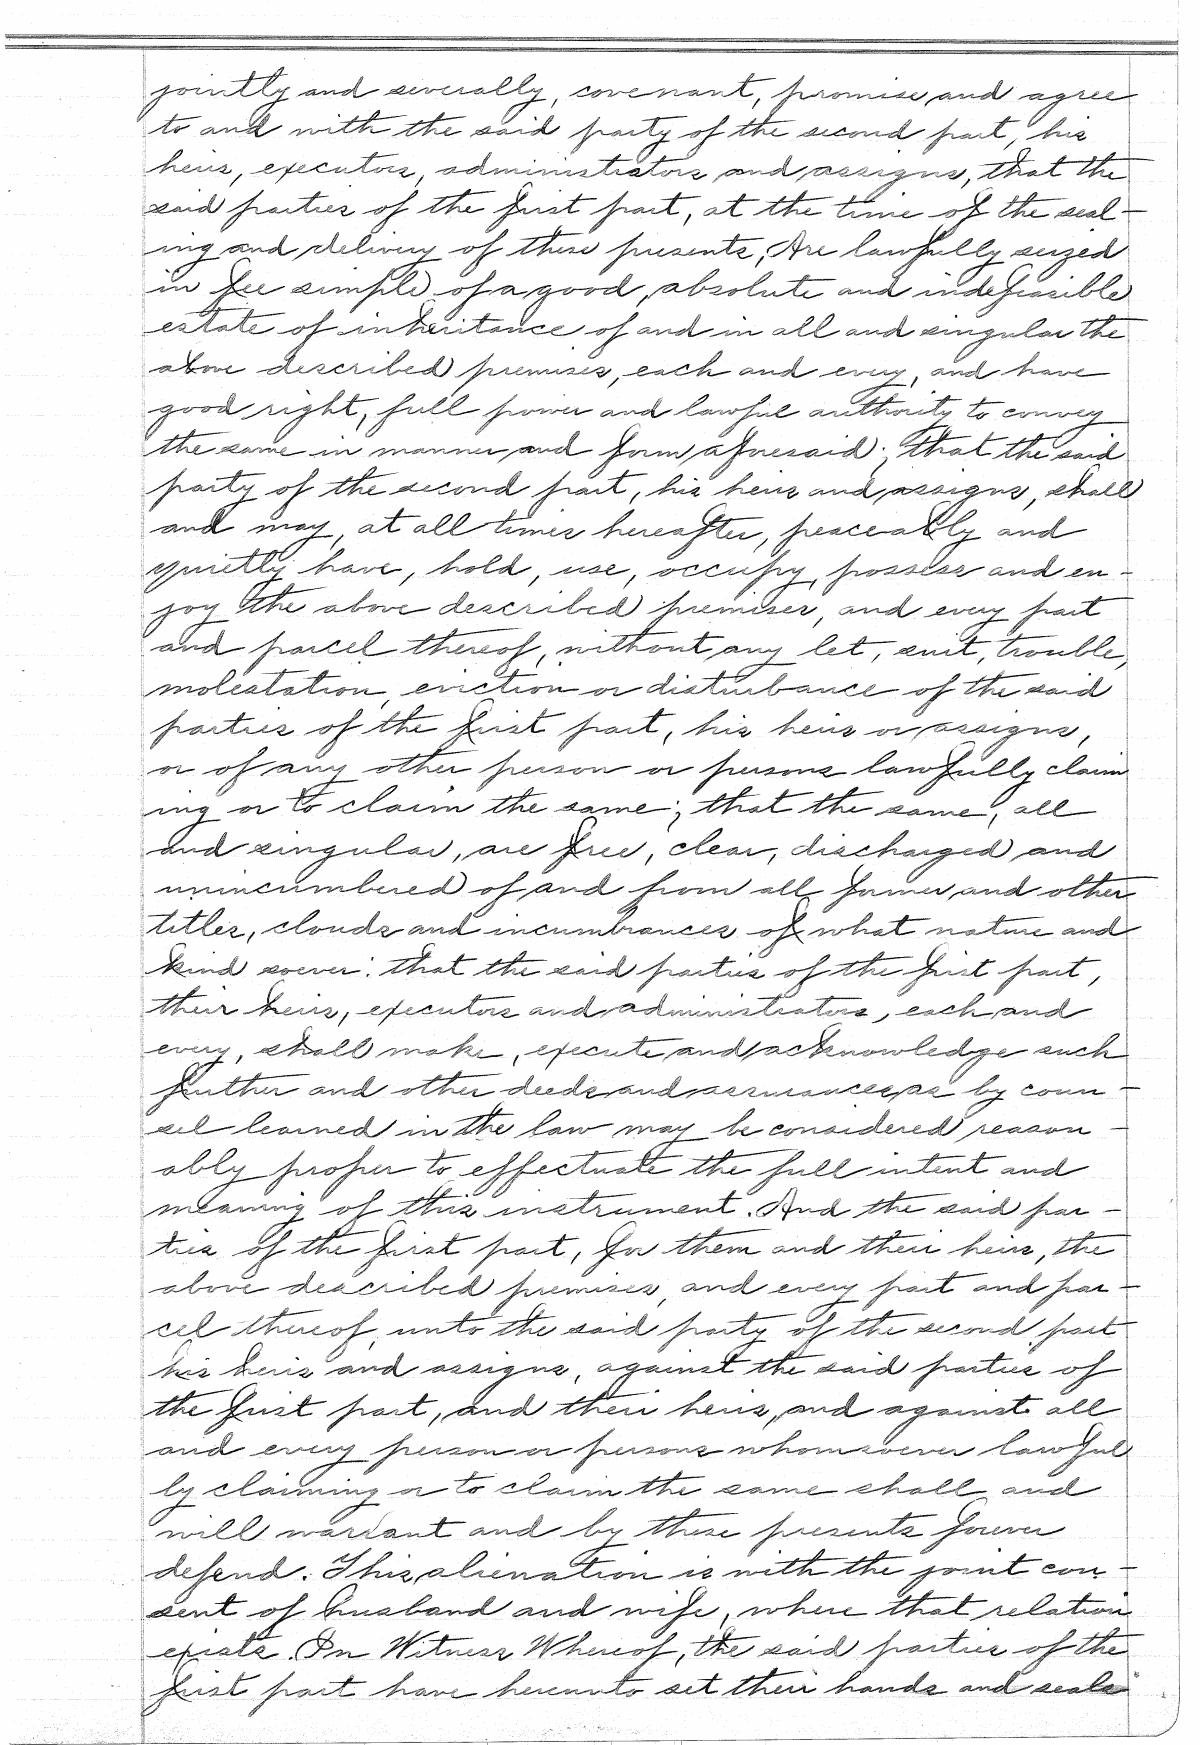 jointly and severally, covenant, promise and agree
to and with the said party of the second part, his
heirs, executors, administrators and assigns, that the
said parties of the first part, at the time of the seal-
ing and delivery of these presents, Are lawfully seized
in fee simple of a good, absolute and indefeasible
estate of inheritance of and in all and singular the
above described premises, each and every, and have
good right, full power and lawful authority to convey
the same in manner and form aforesaid; that the said
party of the second part, his heirs and assigns, shall
and may, at all times hereafter, peaceably and
quietly have, hold, use, occupy, possess and en-
joy the above described premises, and every part
and parcel thereof, without any let, suit, trouble,
molestation, eviction or disturbance of the said
parties of the first part, his heirs or assigns,
or of any other person or persons lawfully claim
ing or to claim the same; that the same, all
and singular, are free, clear, discharged and
unincumbered of and from all former and other
titles, clouds and incumbrances of what nature and
kind soever: that the said parties of the first part,
their heirs, executors and administrators, each and
every, shall make, execute and acknowledge such
further and other deeds and assurances, as by coun-
sel learned in the law may be considered reason-
ably proper to effectuate the full intent and
meaning of this instrument. And the said par-
ties of the first part, for them and their heirs, the
above described premises, and every part and par-
cel thereof, unto the said party of the second part
his heirs and assigns, against the said parties of
the first part, and their heirs, and against all
and every person or persons whomsoever lawful
ly claiming or to claim the same shall and
will warrant and by these presents forever
defend. This alienation is with the joint con-
sent of husband and wife, where that relation
exists. In Witness Whereof, the said parties of the
first part have hereunto set their hands and seals